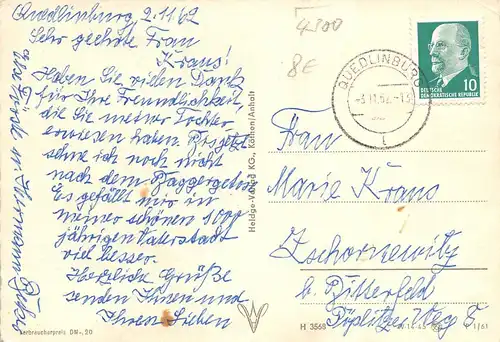 Quedlinburg, 2.11.62
Sehr geehrte Frau
Kraus!
Haben Sie vielen Dank
für Ihre Freundlichkeit
die Sie meiner Tochter
erwiesen haben. Bis jetzt
sehne ich noch nicht
nach dem Baggergetöse
Es gefällt mir in
meiner schönen 1000
jährigen Vaterstadt
viel besser.
Herzliche Grüße
senden Ihnen und
Ihren Lieben
Hermann
Verbraucherpreis DM -,20
Heldge-Verlag KG., Köthen/Anhalt
4300
8€
QUEDLINBURG
DEUTSCHE
DEMOKRATISCHE REPUBLIK
10
Frau
Marie Kraus
Zschornewitz
b. Bitterfeld
Pöplitzer Weg 8
H 3568
1/61